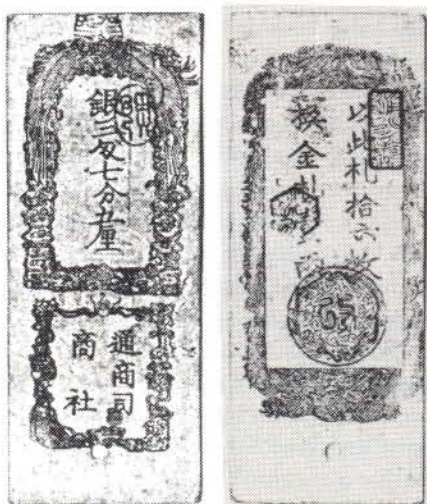 銀三匁七分五厘
通商司
商社
以此札拾六枚
換金札